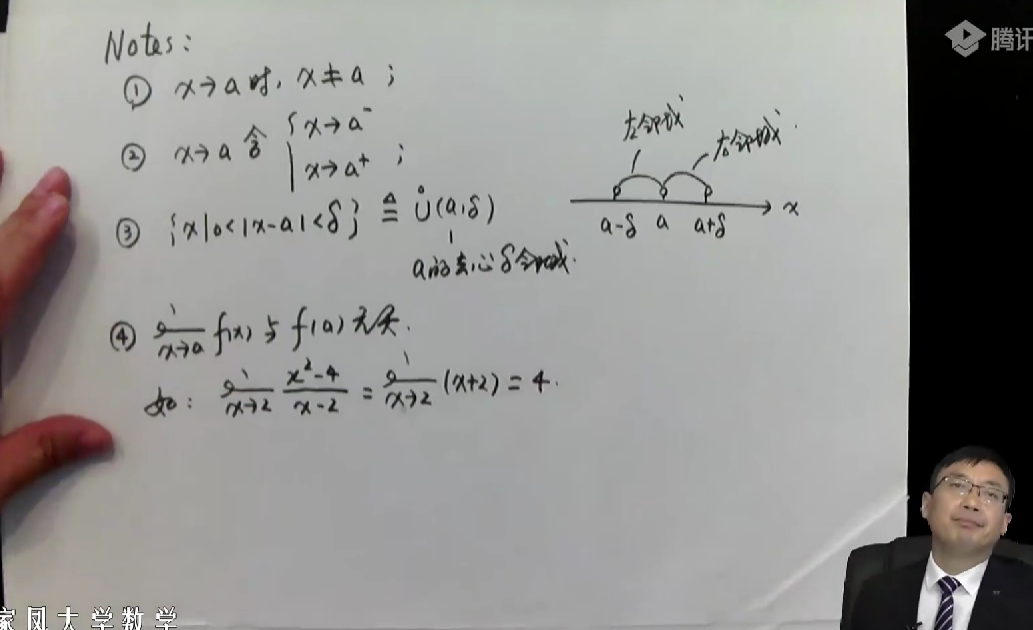 Notes:
① x→a时, x≠a ;
② x→a 含 { x→a⁻
x→a⁺ ;
③ {x|0<|x-a|<δ} ≜ Ů(a,δ)
a的去心δ邻域.
左邻域
右邻域.
a-δ a a+δ x
④ lim x→a f(x) 与 f(a) 无关.
如: lim x→2 (x²-4)/(x-2) = lim x→2 (x+2) = 4.
腾讯
家凤大学数学